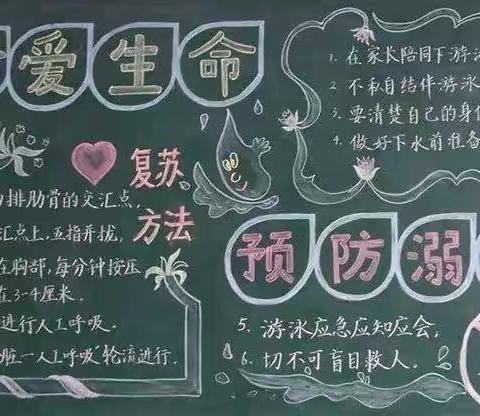 爱生命
复苏
方法
排肋骨的交汇点,
汇点上,五指并拢,
在胸部,每分钟按压
在3-4厘米.
进行人工呼吸.
脏一人工呼吸"轮流进行.
1. 在家长陪同下游泳
2. 不私自结伴游泳
3. 要清楚自己的身体
4. 做好下水前准备
预防溺
5. 游泳应急应知应会.
6. 切不可盲目救人.